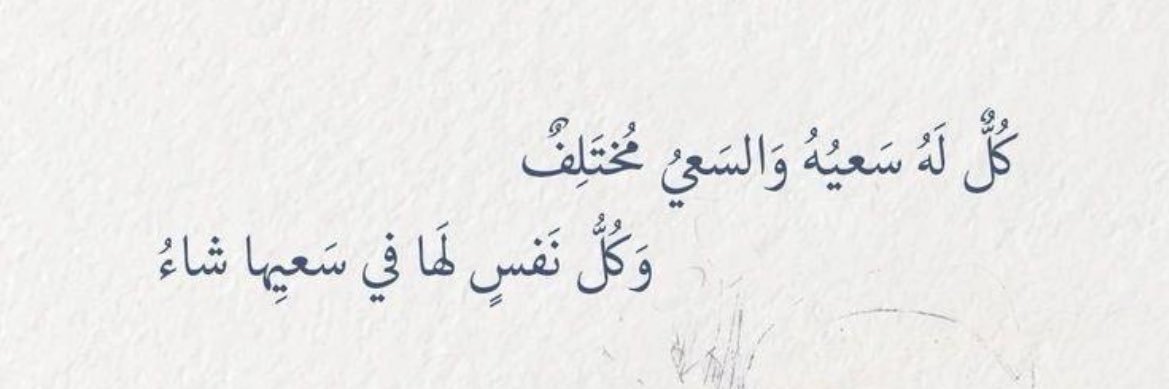 كُلٌّ لَهُ سَعيُهُ وَالسَعيُ مُختَلِفٌ
وَكُلُّ نَفسٍ لَها في سَعيِها شاءُ